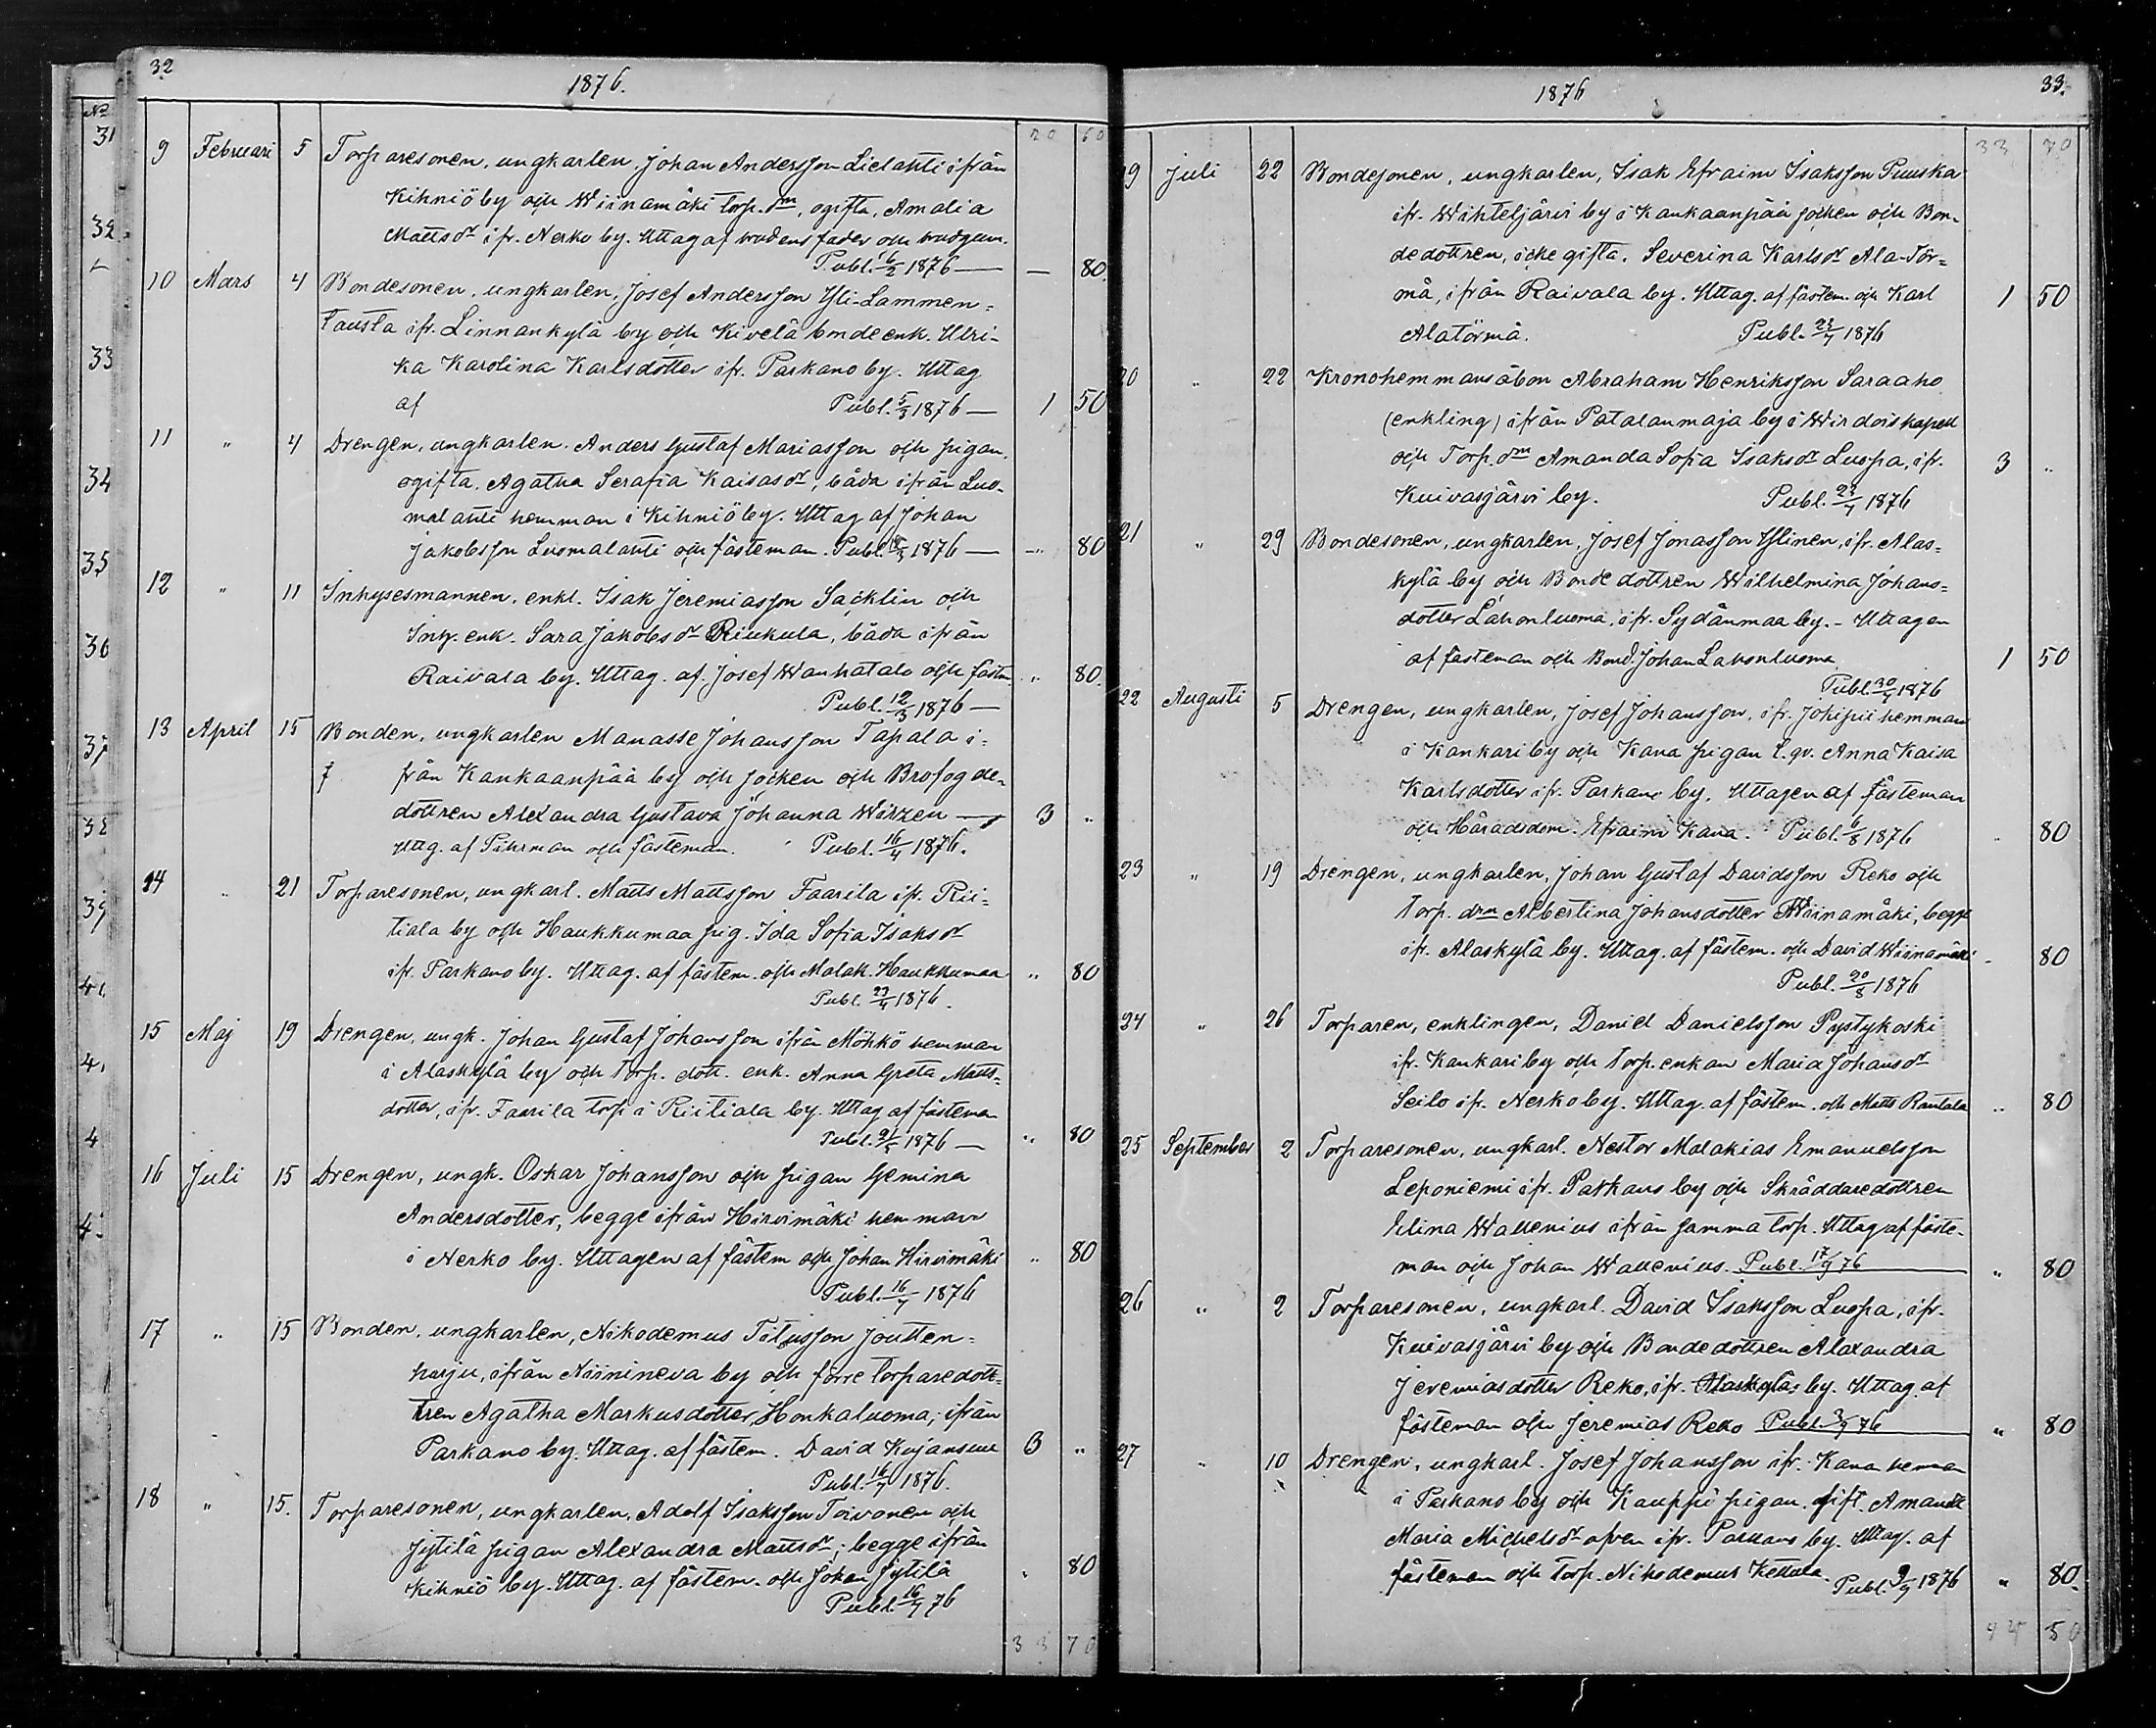 32
1876.
20 60
9 Februari 5 Torparesonen, ungkarlen, Johan Andersson Lielahti ifrån
Kihniö by och Wiinamäki torp. dm, ogifta, Amalia
Mattsdr ifr. Nerko by. Uttag af brudens fader och brudgum.
Publ. 16/2 1876 — — 80.
10 Mars 4 Bondesonen, ungkarlen, Josef Andersson Yli-Lammen-
tausta ifr. Linnankylä by och Kivelä bondeenk. Ulri-
ka Karolina Karlsdotter ifr. Parkano by. Uttag
af Publ. 5/3 1876 — 1 50
11 " 4 Drengen, ungkarlen. Anders Gustaf Mariasson och pigan,
ogifta, Agatha Serafia Kaisasdr, båda ifrån Luo-
malahti hemman i Kihniö by. Uttag af Johan
Jakobsson Luomalahti och fästeman. Publ. /3 1876 — — 80
12 " 11 Inhysesmannen, enkl. Isak Jeremiasson Säcklin och
Inhy. enk. Sara Jakobsdr Riukula, båda ifrån
Raivala by. Uttag. af. Josef Wanhatalo och fästm. " 80.
Publ. 12/3 1876 —
13 April 15 Bonden, ungkarlen Manasse Johansson Tapala i-
från Kankaanpää by och socken och Brofogde-
dottren Alexandra Gustava Johanna Wirzen — 3 "
Uttg. af och fästeman. Publ. 16/4 1876.
14 " 21 Torparesonen, ungkarl. Matts Mattsson Faarila ifr. Rii-
tiala by och Haukkumaa pig. Ida Sofia Isaksdr
ifr. Parkano by. Uttag. af fästem. och Malak. Haukkumaa " 80
Publ. 23/4 1876.
15 Maj 19 Drengen, ungk. Johan Gustaf Johansson ifrån Möhkö hemman
i Alaskylä by och torp. dott. enk. Anna Greta Matts-
dotter, ifr. Faarila torp i Riitiala by. Uttag af fästeman
Publ. 21/5 1876 — " 80
16 Juli 15 Drengen, ungk. Oskar Johansson och pigan Gemina
Andersdotter, begge ifrån Hirvimäki hemman
i Nerko by. Uttagen af fästem och Johan Hirvimäki " 80
Publ. 16/7 1876
17 " 15 Bonden, ungkarlen, Nikodemus Titusson Joutten-
harju, ifrån Niinineva by och förre torparedott-
tren Agatha Markusdotter, Honkaluoma, ifrån
Parkano by. Uttag. af fästem. David Kujansuu 3 "
Publ. 16/7 1876.
18 " 15. Torparesonen, ungkarlen, Adolf Isaksson Toivonen och
Jytilä pigan Alexandra Mattsdr; begge ifrån
Kihniö by. Uttag. af fästem. och Johan Jytilä " 80
Publ. 16/7 76
33 70
1876
33.
33 70
19 Juli 22 Bondesonen, ungkarlen, Isak Efraim Isaksson Puuska
ifr. Wihteljärvi by i Kankaanpää socken och Bon-
dedottren, icke gifta. Severina Karlsdr Ala-Tör-
mä, ifrån Raivala by. Uttag. af fästem. och Karl 1 50
Alatörmä. Publ. 23/7 1876
20 " 22 Kronohemmansåbon Abraham Henriksson Saraaho
(enkling) ifrån Patalanmaja by i Wirdois kapell
och Torp. dm Amanda Sofia Isaksdr Luopa, ifr. 3 "
Kuivasjärvi by. Publ. 23/7 1876
21 " 29 Bondesonen, ungkarlen, Josef Jonasson Ylinen, ifr. Alas-
kylä by och Bonde dottren Wilhelmina Johans-
dotter Lahonluoma, ifr. Sydänmaa by. - Uttagen
af fästeman och Bond. Johan Lahonluoma 1 50
Publ. 30/7 1876
22 Augusti 5 Drengen, ungkarlen, Josef Johansson, ifr. Johipii hemman
i Kankari by och Kana pigan l. qv. Anna Kaisa
Karlsdotter ifr. Parkano by. Uttagen af fästeman
och Häradsdom. Efraim Kana. Publ. 6/8 1876 " 80
23 " 19 Drengen, ungkarlen, Johan Gustaf Davidsson Reko och
Torp. drn Albertina Johansdotter Wiinamäki, begge
ifr. Alaskylä by. Uttag. af fästem. och David Wiinamäki - 80
Publ. 20/8 1876
24 " 26 Torparen, enklingen, Daniel Danielsson Pystykoski
ifr. Kankari by och torp. enkan Maria Johansdr
Seilo ifr. Nerko by. Uttag. af fästem. och Matts Rantala " 80
25 September 2 Torparesonen, ungkarl. Nestor Malakias Emanuelsson
Leponiemi ifr. Parkano by och Skräddaredottren
Elina Wallenius ifrån samma torp. Uttag af fäste-
man och Johan Wallenius. Publ. 17/9 76 " 80
26 " 2 Torparesonen, ungkarl. David Isaksson Luopa, ifr.
Kuivasjärvi by och Bondedottren Alexandra
Jeremiasdotter Reko, ifr. Alaskylä by. Uttag. af
fästeman och Jeremias Reko Publ. 3/9 76 " 80
27 " 10 Drengen, ungkarl. Josef Johansson ifr. Kana hemman
i Parkano by och Kauppi pigan, gift. Amanda
Maria Michelsdr äfven ifr. Parkano by. Uttag. af
fästeman och torp. Nikodemus Kettula. Publ. 9/9 1876 " 80.
50